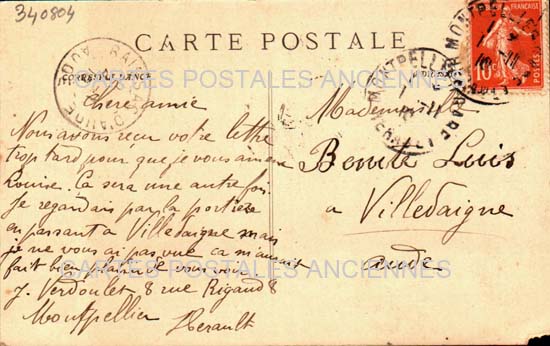 340804
CARTE POSTALE
CORRESPONDANCE
MONTPELLIER
MONTPELLIER
HERAULT
10c
POSTES
Chère amie
Nous avons reçu votre lettre
trop tard pour que je vous amène
Louise. Ca sera une autre fois
Je regardais par la portière
en passant a Villedaigne mais
je ne vous ai pas vue ca m'aurait
fait bien plaisir de vous voir
J. Verdoulet 8 rue Rigaud 8
Montpellier
Herault
Mademoiselle
Benite Luis
a Villedaigne
aude
CARTES POSTALES ANCIENNES
CARTES POSTALES ANCIENNES
CARTES POSTALES ANCIENNES